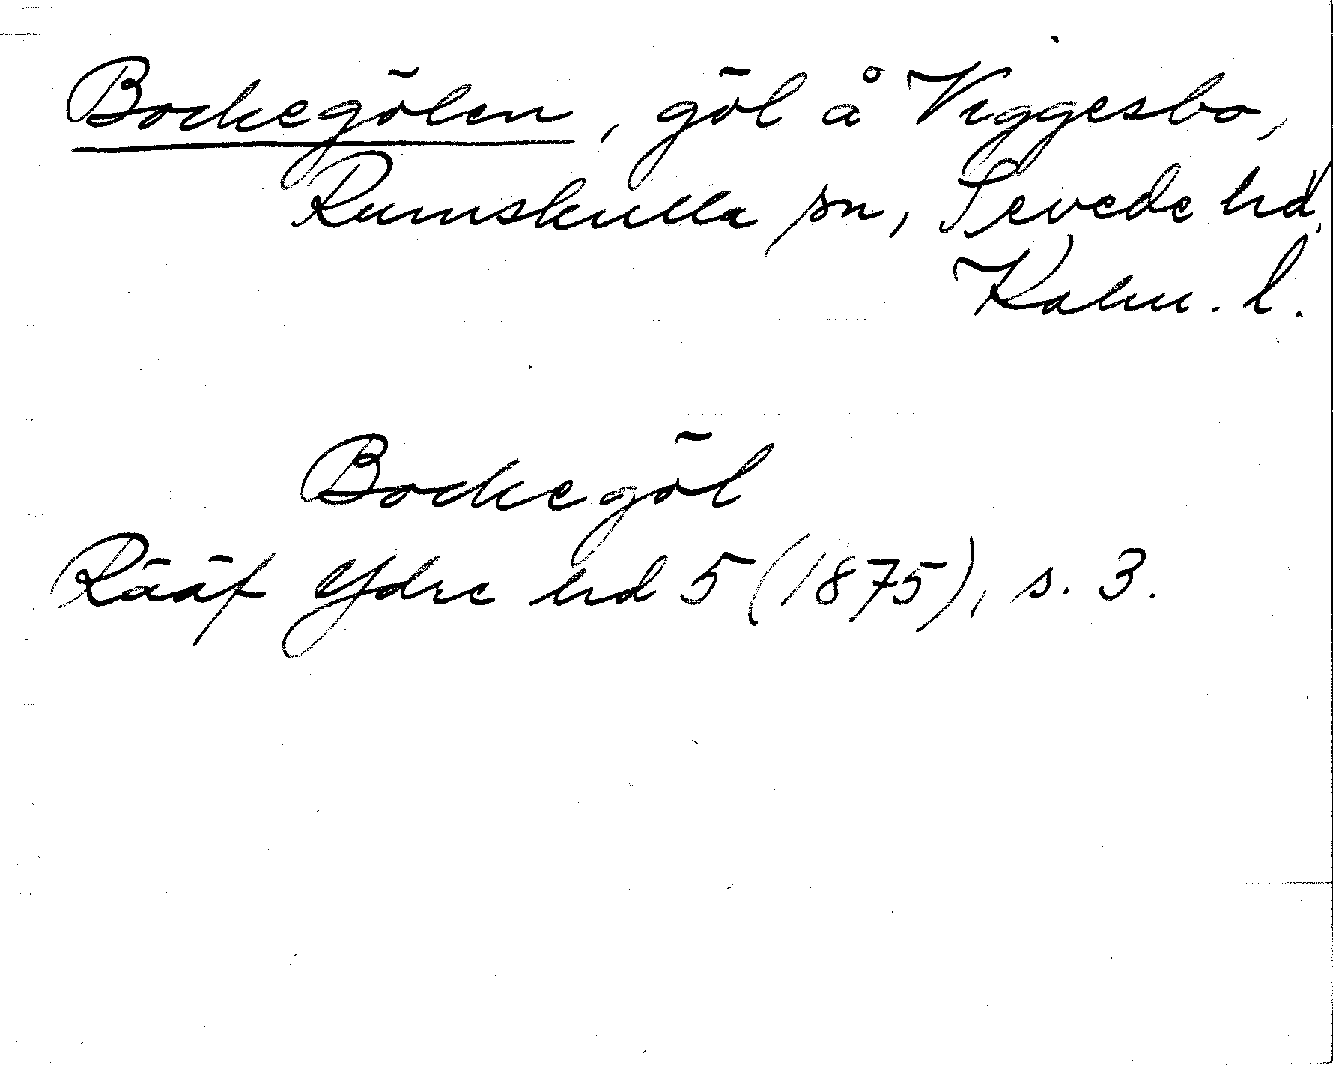 Bockegölen, göl å Viggesbo,
Rumskulla sn, Sevede hd,
Kalm. l.
Bockegöl
Rääf Ydre hd 5 (1875), s. 3.